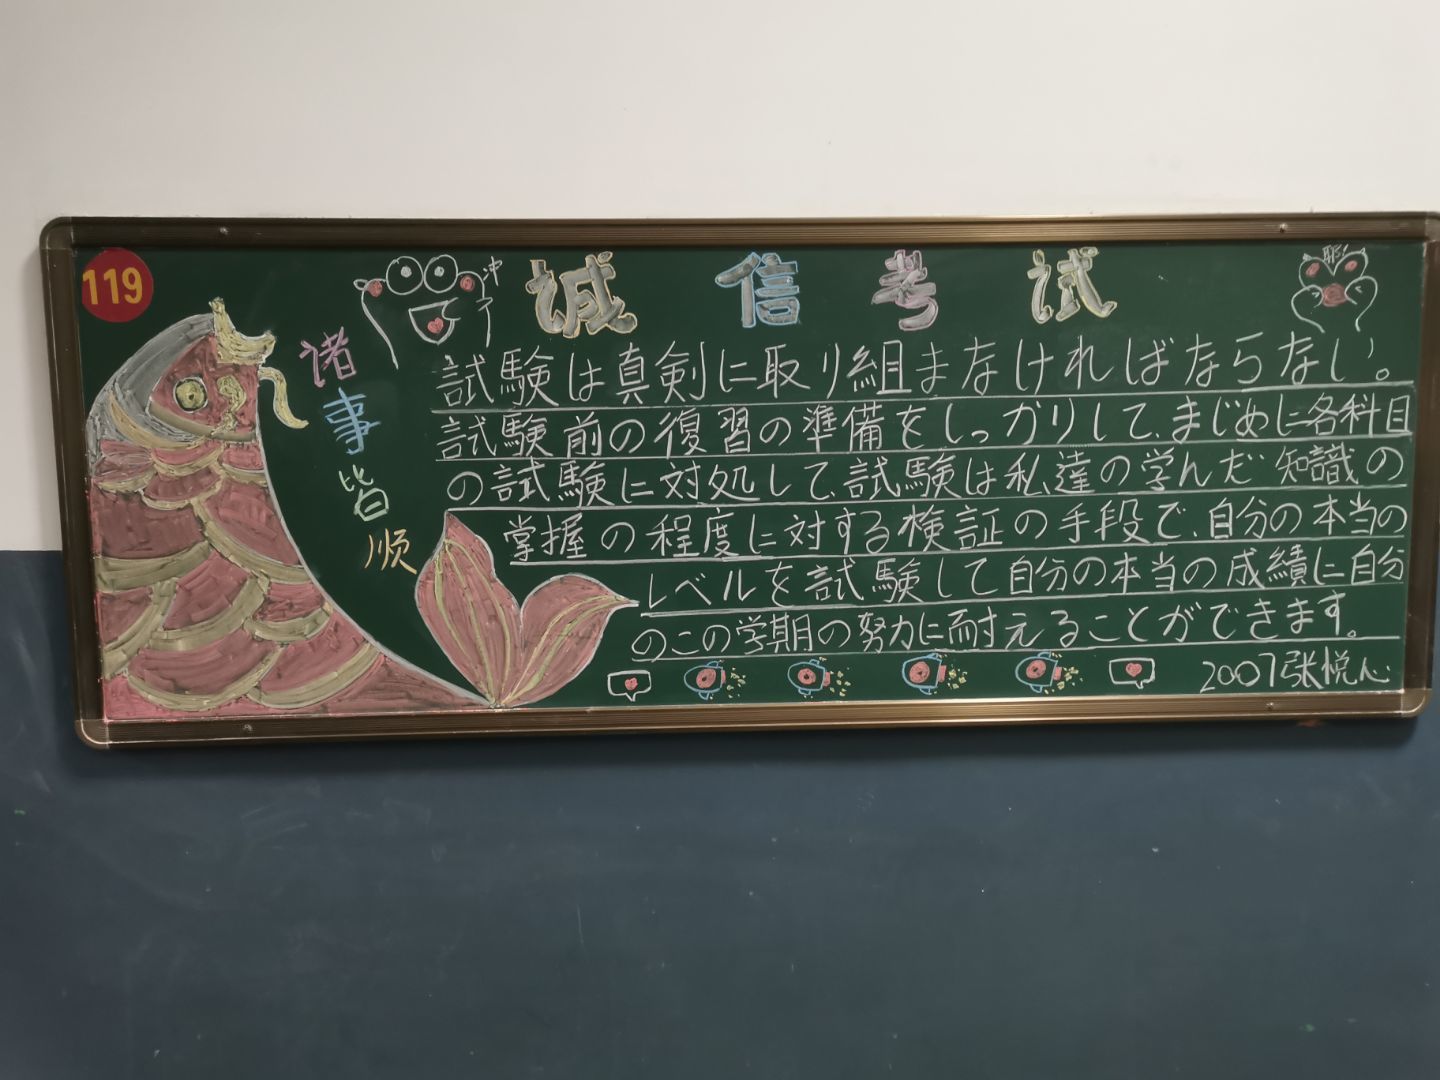 119
诸事皆顺
冲
诚信考试
耶!
試験は真剣に取り組まなければならない。
試験前の復習の準備をしっかりして、まじめに各科目
の試験に対処して、試験は私達の学んだ知識の
掌握の程度に対する検証の手段で、自分の本当の
レベルを試験して自分の本当の成績に自分
のこの学期の努力に耐えることができます。
2007张悦心